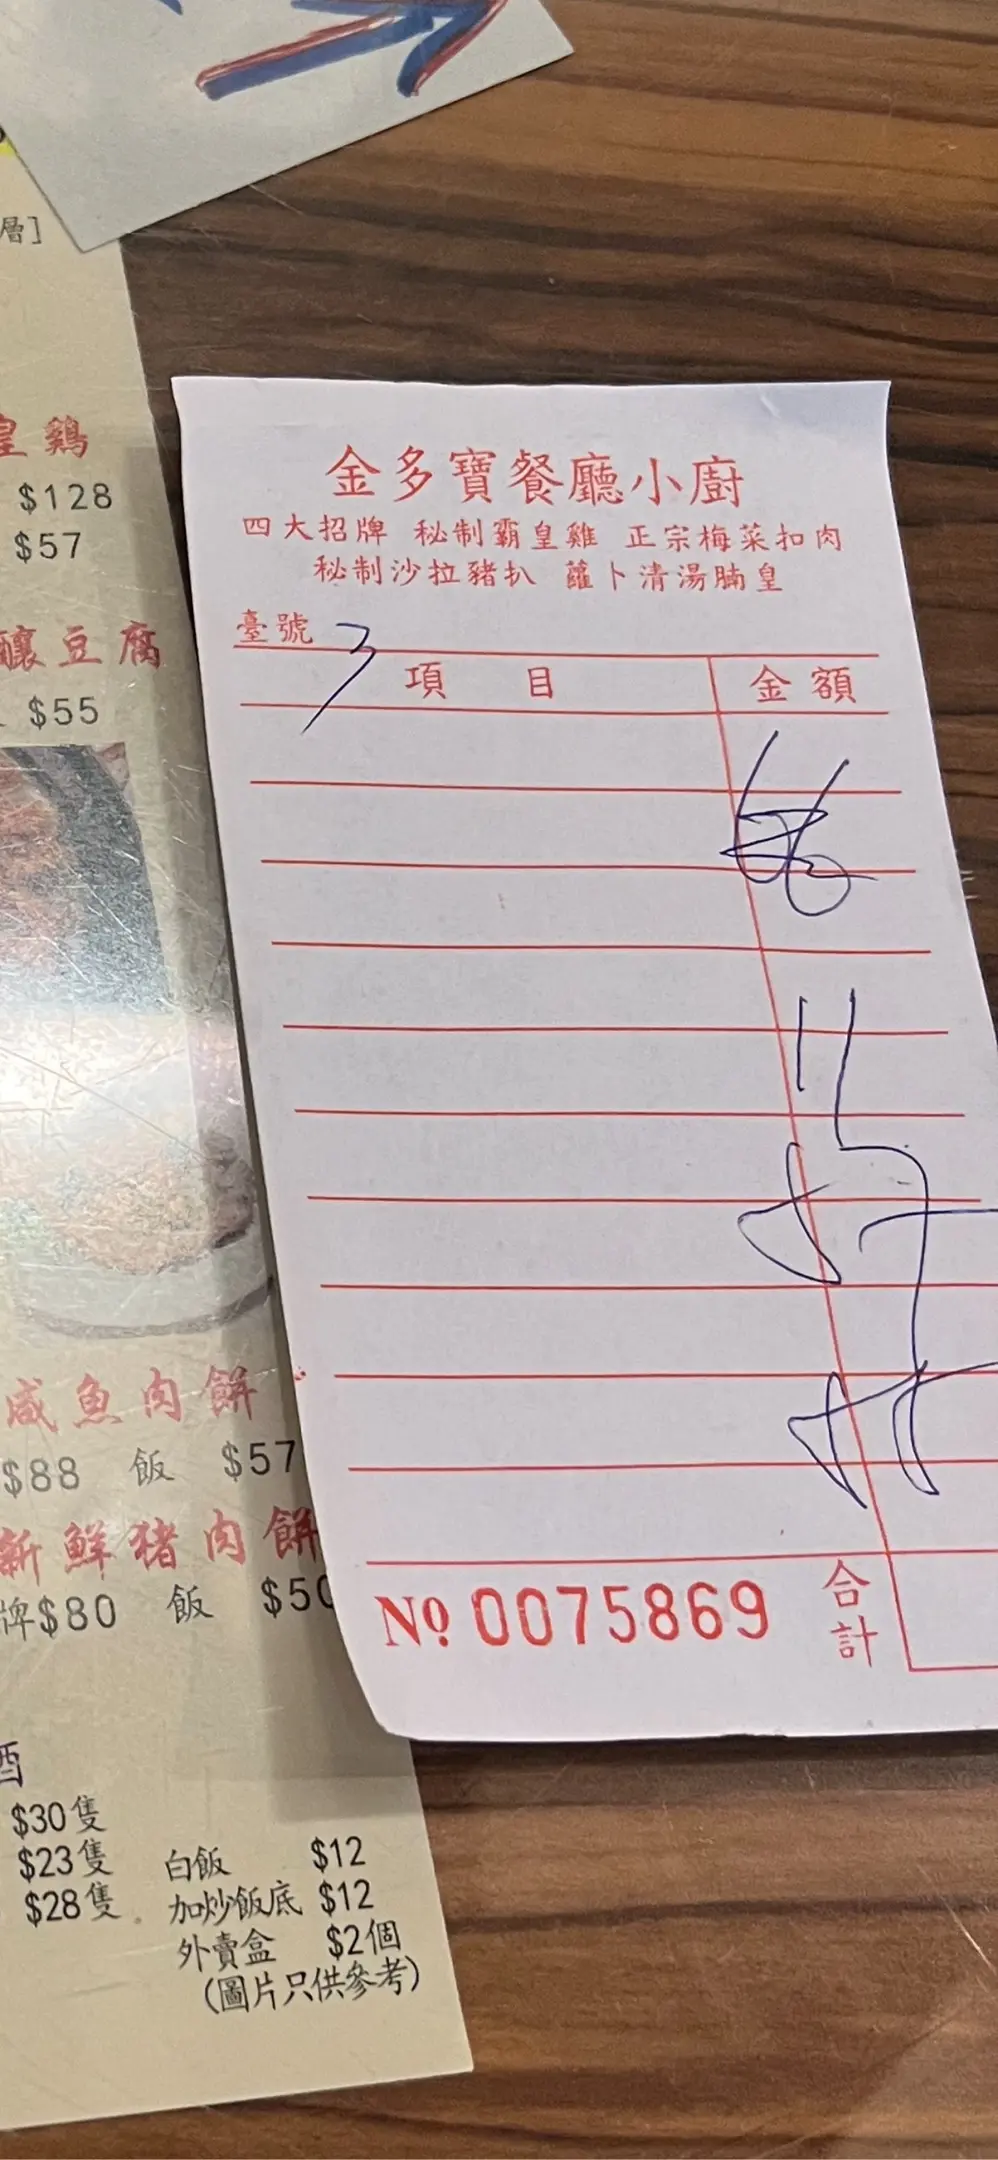 層]
皇鷄
$128
$57
釀豆腐
$55
咸魚肉餅
$88 飯 $57
新鮮猪肉餅
牌$80 飯 $50
酒
$30隻
$23隻
$28隻
白飯 $12
加炒飯底 $12
外賣盒 $2個
(圖片只供參考)
金多寶餐廳小廚
四大招牌 秘制霸皇雞 正宗梅菜扣肉
秘制沙拉豬扒 蘿卜清湯腩皇
臺號 3
項 目 金額
No 0075869
合計